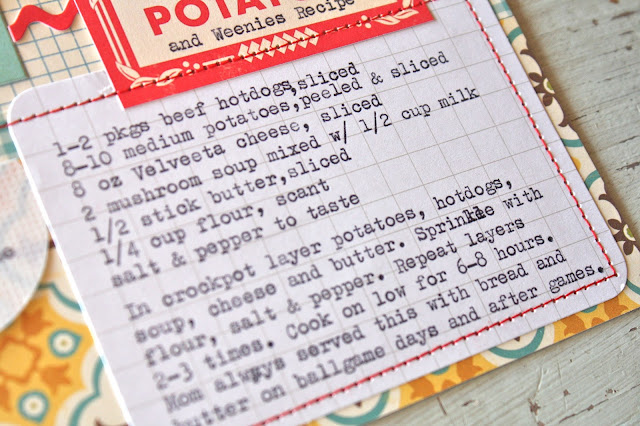 POTATO
and Weenies Recipe
1-2 pkgs beef hotdogs,sliced
8-10 medium potatoes,peeled & sliced
8 oz Velveeta cheese, sliced
2 mushroom soup mixed w/ 1/2 cup milk
1/2 stick butter,sliced
1/4 cup flour, scant
salt & pepper to taste
In crockpot layer potatoes, hotdogs,
soup, cheese and butter. Sprinkle with
flour, salt & pepper. Repeat layers
2-3 times. Cook on low for 6-8 hours.
Mom always served this with bread and
butter on ballgame days and after games.